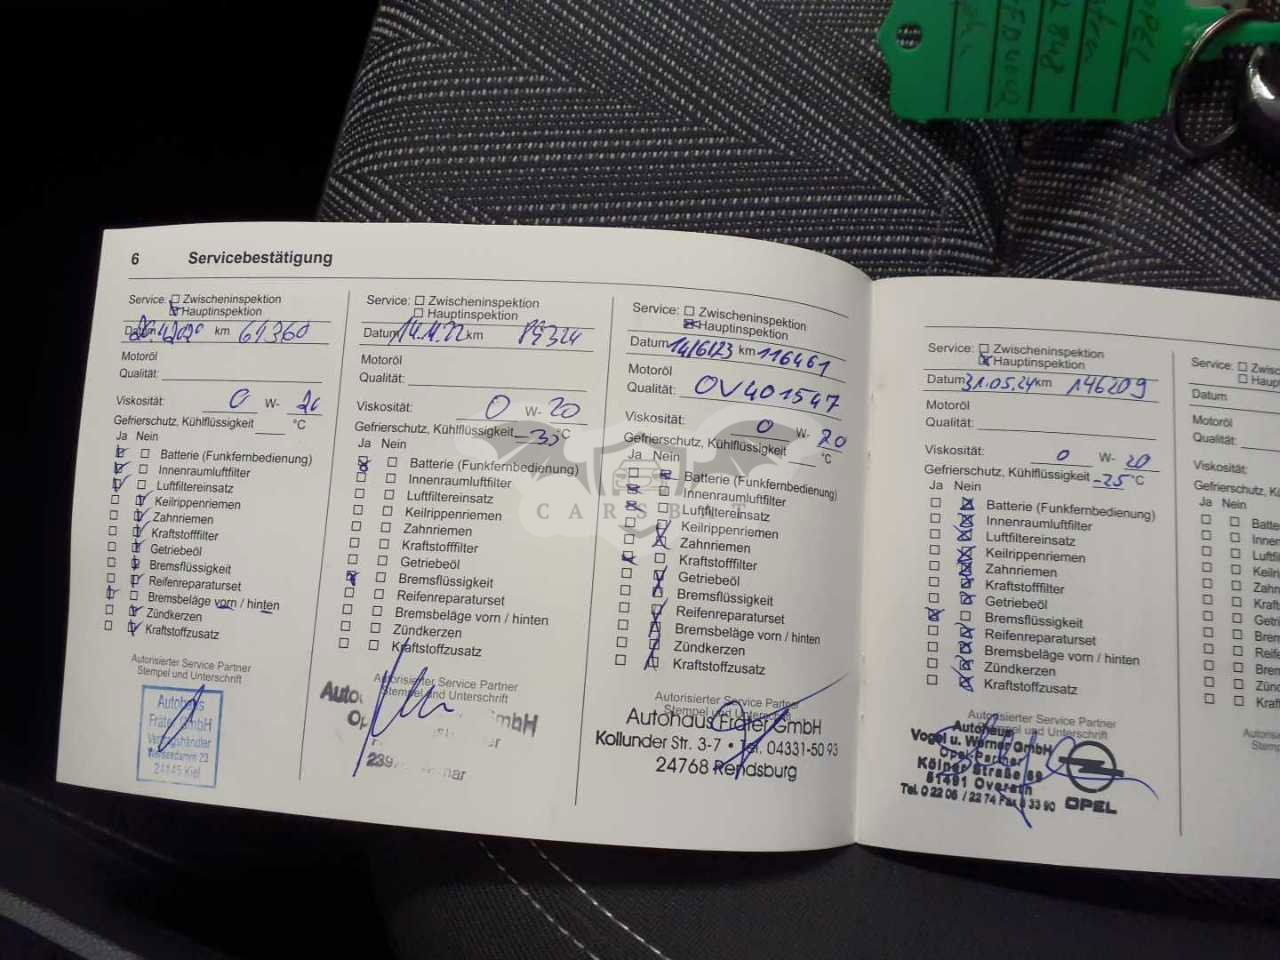 6 Servicebestätigung
Service: Zwischeninspektion
Hauptinspektion
Datum km 61360
Motoröl
Qualität:
Viskosität: 0 W- 20
Gefrierschutz, Kühlflüssigkeit °C
Ja Nein
Batterie (Funkfernbedienung)
Innenraumluftfilter
Luftfiltereinsatz
Keilrippenriemen
Zahnriemen
Kraftstofffilter
Getriebeöl
Bremsflüssigkeit
Reifenreparaturset
Bremsbeläge vorn / hinten
Zündkerzen
Kraftstoffzusatz
Autorisierter Service Partner
Stempel und Unterschrift
Autohaus
Fräter GmbH
Vertragshändler
24145 Kiel
Service: Zwischeninspektion
Hauptinspektion
Datum 14.4.22 km
Motoröl
Qualität:
Viskosität: 0 W- 20
Gefrierschutz, Kühlflüssigkeit °C
Ja Nein
Batterie (Funkfernbedienung)
Innenraumluftfilter
Luftfiltereinsatz
Keilrippenriemen
Zahnriemen
Kraftstofffilter
Getriebeöl
Bremsflüssigkeit
Reifenreparaturset
Bremsbeläge vorn / hinten
Zündkerzen
Kraftstoffzusatz
Autorisierter Service Partner
Stempel und Unterschrift
GmbH
Service: Zwischeninspektion
Hauptinspektion
Datum 14/6/23 km 116461
Motoröl
Qualität: OV401547
Viskosität: 0 W- 20
Gefrierschutz, Kühlflüssigkeit °C
Ja Nein
Batterie (Funkfernbedienung)
Innenraumluftfilter
Luftfiltereinsatz
Keilrippenriemen
Zahnriemen
Kraftstofffilter
Getriebeöl
Bremsflüssigkeit
Reifenreparaturset
Bremsbeläge vorn / hinten
Zündkerzen
Kraftstoffzusatz
Autorisierter Service Partner
Stempel und Unterschrift
Autohaus Fräter GmbH
Kollunder Str. 3-7 • Tel. 04331-50 93
24768 Rendsburg
Service: Zwischeninspektion
Hauptinspektion
Datum 31.05.24 km 146209
Motoröl
Qualität:
Viskosität: 0 W- 20
Gefrierschutz, Kühlflüssigkeit -25 °C
Ja Nein
Batterie (Funkfernbedienung)
Innenraumluftfilter
Luftfiltereinsatz
Keilrippenriemen
Zahnriemen
Kraftstofffilter
Getriebeöl
Bremsflüssigkeit
Reifenreparaturset
Bremsbeläge vorn / hinten
Zündkerzen
Kraftstoffzusatz
Autorisierter Service Partner
Stempel und Unterschrift
Autohaus
Vogel u. Werner GmbH
Opel Partner
Kölner Straße 59
51491 Overath
Tel. 0 22 06 / 22 74 Fax 8 33 90
OPEL
Service:
Datum
Motoröl
Qualität:
Viskosität:
Gefrierschutz,
Ja Nein
CARSBIT